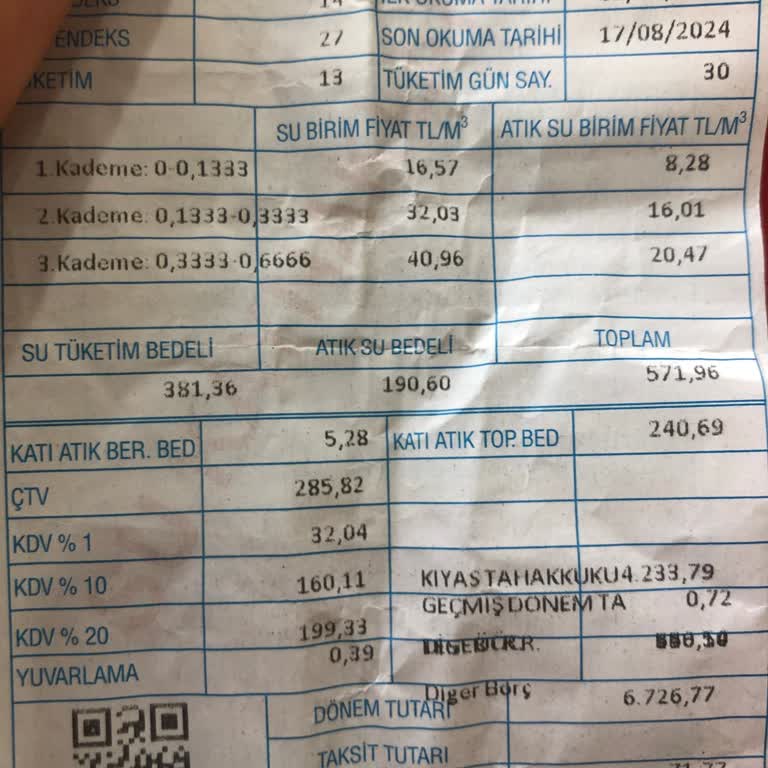 14
ENDEKS 27 SON OKUMA TARİHİ 17/08/2024
KETİM 13 TÜKETİM GÜN SAY. 30
SU BİRİM FİYAT TL/M³ ATIK SU BİRİM FİYAT TL/M³
1.Kademe: 0-0,1333 16,57 8,28
2.Kademe: 0,1333-0,3333 32,03 16,01
3.Kademe: 0,3333-0,6666 40,96 20,47
SU TÜKETİM BEDELİ ATIK SU BEDELİ TOPLAM
381,36 190,60 571,96
KATI ATIK BER. BED 5,28 KATI ATIK TOP. BED 240,69
ÇTV 285,82
KDV % 1 32,04
KDV % 10 160,11 KIYAS TAHAKKUKU 4.233,79
GEÇMİŞ DÖNEM TA 0,72
KDV % 20 199,33
YUVARLAMA 0,39
Diger Borç
DÖNEM TUTARI 6.726,77
TAKSİT TUTARI